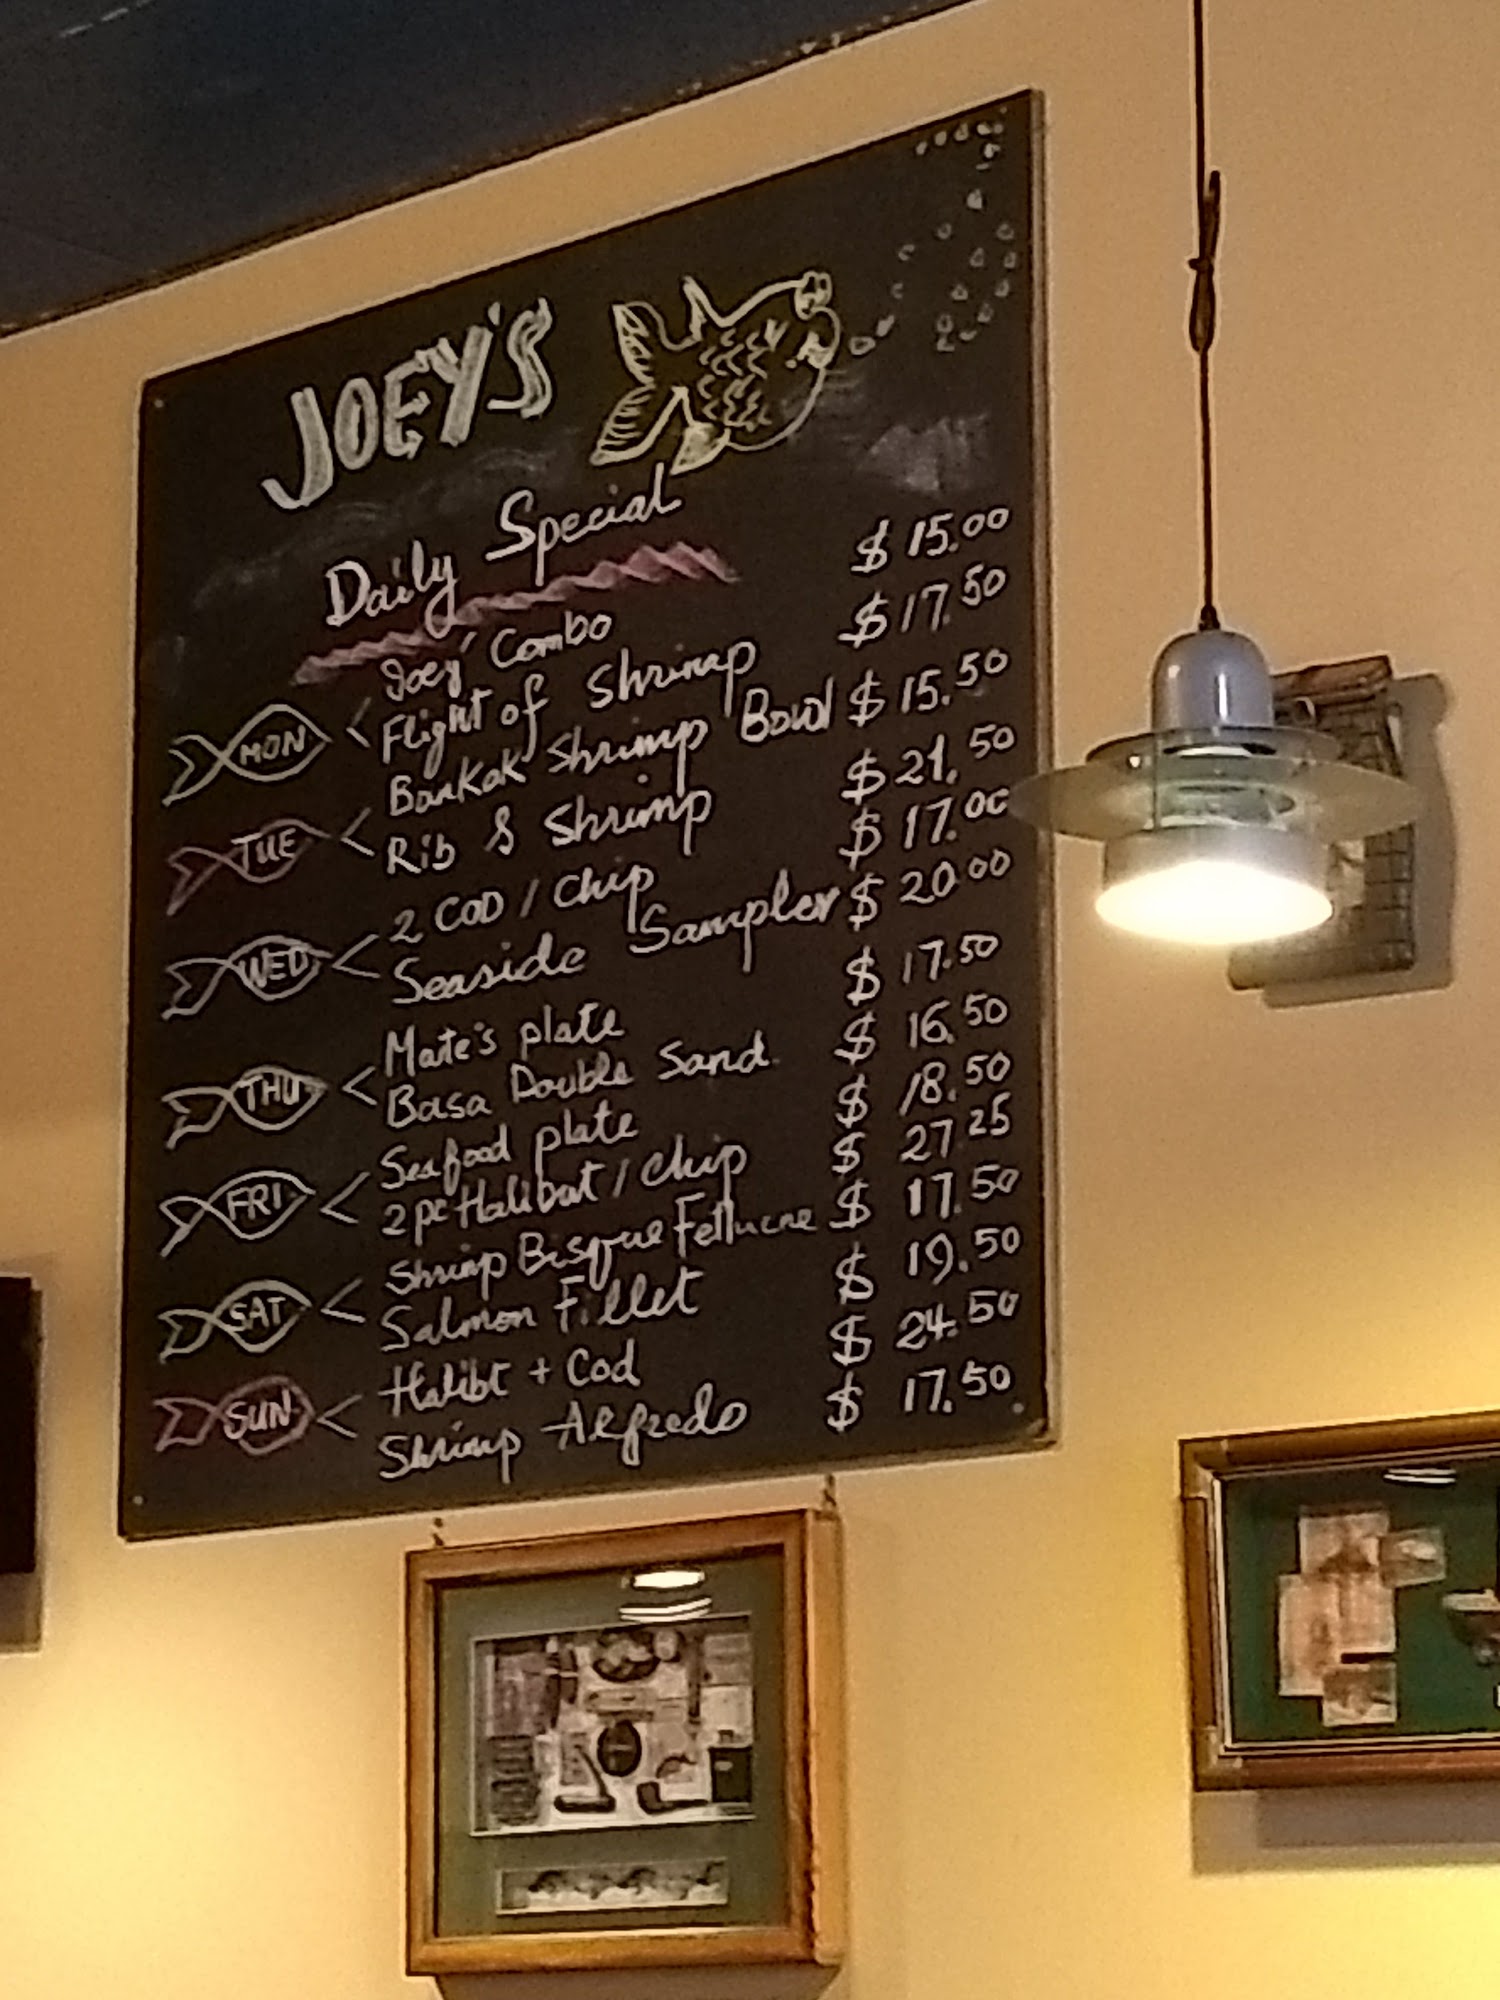 JOEY'S
Daily Special
MON < Joey' Combo $ 15.00
Flight of Shrimp $ 17.50
TUE < Bankok Shrimp Bowl $ 15.50
Rib & Shrimp $ 21.50
WED < 2 COD / Chip $ 17.00
Seaside Sampler $ 20.00
THU < Mate's plate $ 17.50
Basa Double Sand. $ 16.50
FRI < Seafood plate $ 18.50
2pc Halibut / Chip $ 27.25
SAT < Shrimp Bisque Fettucine $ 17.50
Salmon Fillet $ 19.50
SUN < Halibt + Cod $ 24.50
Shrimp Alfredo $ 17.50